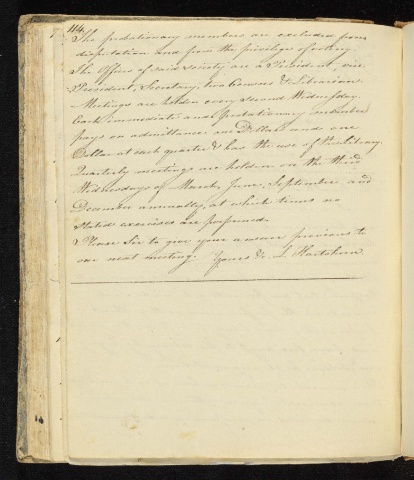 114
The probationary members are excluded from
disputation and from the privilege of voting.
The Officers of said society are a President, vice
President, Secretary, two Censors & Librarian
Meetings are holden every second Wednesday.
Each immediate and probationary member
pays on admittance one Dollar and one
Dollar at each quarter & has the use of the Library.
Quarterly meetings are holden on the third
Wednesdays of March, June, September and
December annually, at which times no
stated exercises are performed.
Please Sir to give your answer previous to
our next meeting. Yours &c.